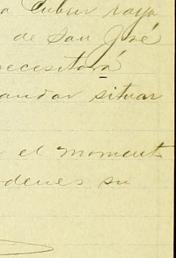 a Cubrir raya
de San José
necesitará
mandar situar
el momento
ordenes su